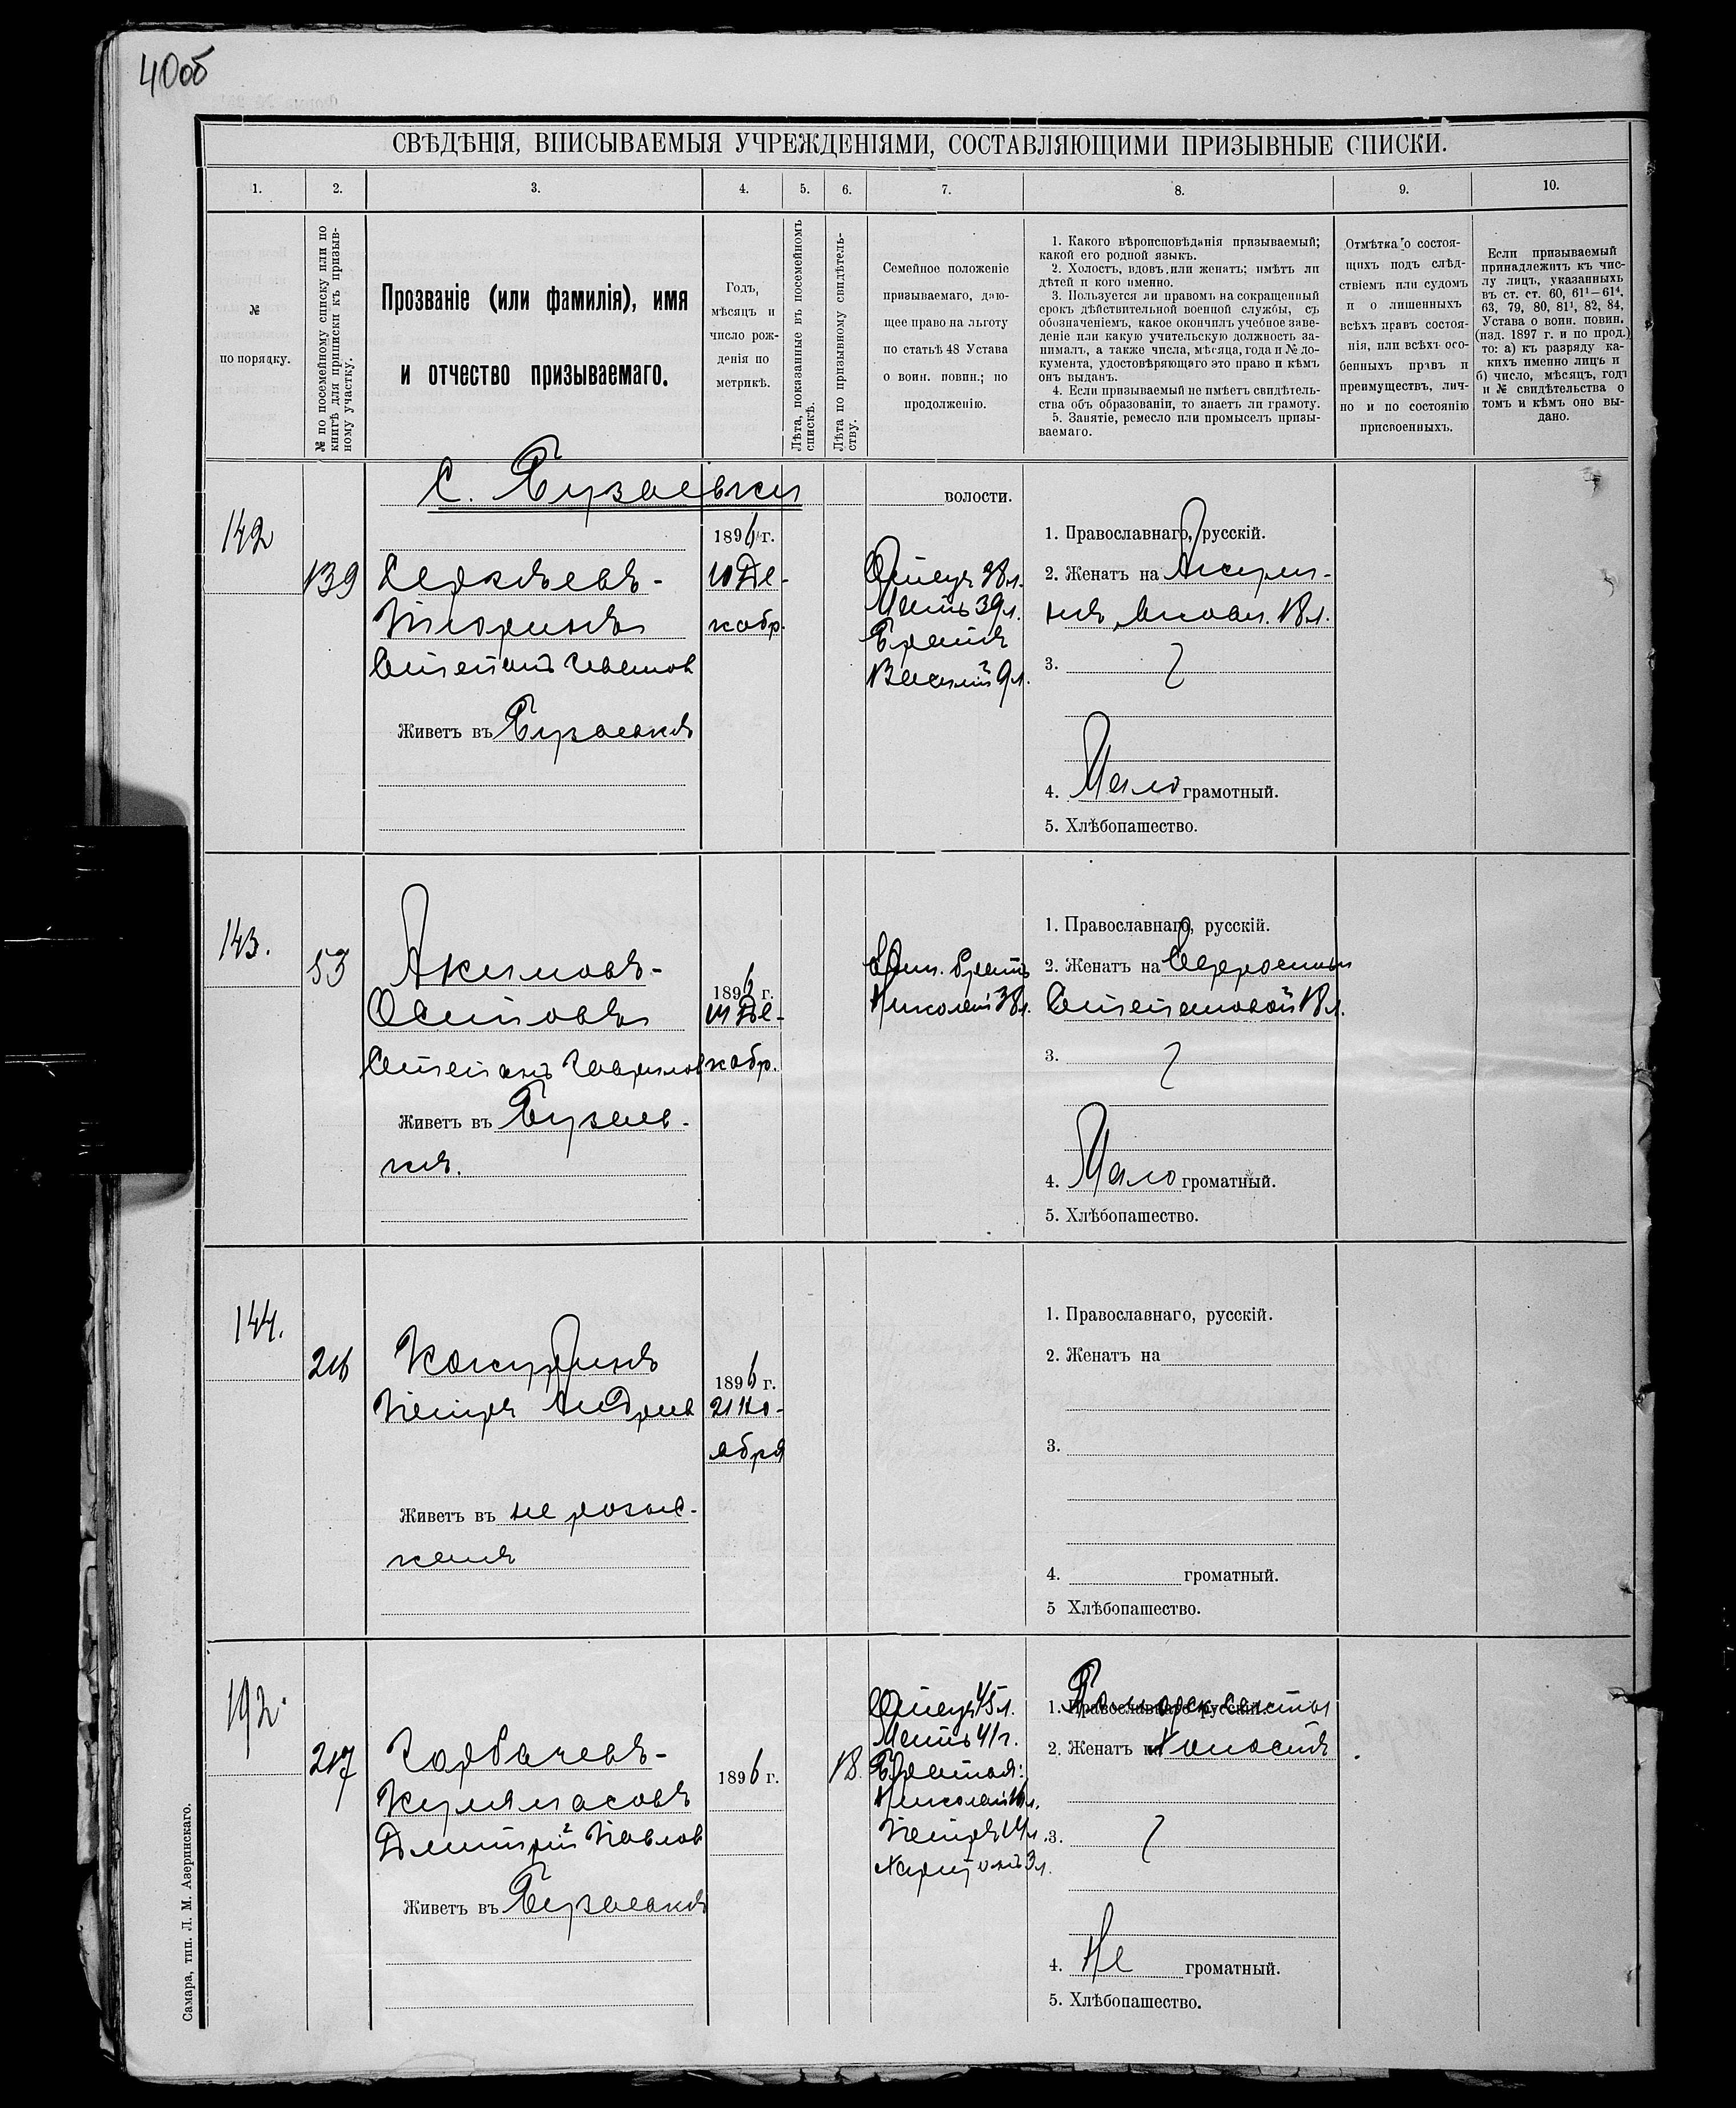 40об
СВѢДѢНІЯ, ВПИСЫВАЕМЫЯ УЧРЕЖДЕНІЯМИ, СОСТАВЛЯЮЩИМИ ПРИЗЫВНЫЕ СПИСКИ.
1. 2. 3. 4. 5. 6. 7. 8. 9. 10.
№
по порядку.
№ по посемейному списку или по
книгѣ для приписки къ призыв-
ному участку.
Прозваніе (или фамилія), имя
и отчество призываемаго.
Годъ,
мѣсяцъ и
число рож-
денія по
метрикѣ.
Лѣта, показанные въ посемейномъ
спискѣ.
Лѣта по призывному свидѣтель-
ству.
Семейное положеніе
призываемаго, даю-
щее право на льготу
по статьѣ 48 Устава
о воин. повин.; по
продолженію.
1. Какого вѣроисповѣданія призываемый;
какой его родной языкъ.
2. Холостъ, вдовъ или женатъ; имѣтъ ли
дѣтей и кого именно.
3. Пользуется ли правомъ на сокращенный
срокъ дѣйствительной военной службы, съ
обозначеніемъ, какое окончилъ учебное заве-
деніе или какую учительскую должность за-
нималъ, а также числа, мѣсяца, года и № до-
кумента, удостовѣряющаго это право и кѣмъ
онъ выданъ.
4. Если призываемый не имѣетъ свидѣтель-
ства объ образованіи, то знаетъ ли грамоту.
5. Занятіе, ремесло или промыселъ призы-
ваемаго.
Отмѣтка о состоя-
щихъ подъ слѣд-
ствіемъ или судомъ
и о лишенныхъ
всѣхъ правъ состоя-
нія, или всѣхъ осо-
бенныхъ правъ и
преимуществъ, лич-
но и по состоянію
присвоенныхъ.
Если призываемый
принадлежитъ къ чис-
лу лицъ, указанныхъ
въ ст. ст. 60, 61¹—61⁴,
63, 79, 80, 81¹, 82, 84,
Устава о воин. повин.
(изд. 1897 г. и по прод.)
то: а) къ разряду ка-
кихъ именно лицъ и
б) число, мѣсяцъ, годъ
и № свидѣтельства о
томъ и кѣмъ оно вы-
дано.
С. Бузаевки
волости.
142
139
Сергѣевъ-
Тюринъ
Степанъ Иванов
Живетъ въ Бузаевкѣ
1896 г.
10 Де-
кабр.
Отецъ 38 л.
Мать 39 л.
Братъ
Василій 9 л.
1. Православнаго, русскій.
2. Женатъ на
18 л.
3.
4. Мало грамотный.
5. Хлѣбопашество.
143.
53
Акимовъ-
Осиповъ
Степанъ Гаврилов
Живетъ въ Бузаев-
кѣ.
1896 г.
Де-
кабр.
братъ
Николай 38 л.
1. Православнаго, русскій.
2. Женатъ на
Степановой 18 л.
3.
4. Мало громатный.
5. Хлѣбопашество.
144.
216
Петръ Андреев
Живетъ въ не розыс-
канъ
1896 г.
21 Но-
ября
1. Православнаго, русскій.
2. Женатъ на
3.
4. громатный.
5 Хлѣбопашество.
192.
217
Горбачевъ-
Дмитрій Павлов
Живетъ въ Бузаевкѣ
1896 г.
18.
Отецъ 45 л.
Мать 41 г.
Братья:
Николай 16 л.
Петръ 14 л.
Харитонъ 3 л.
1. Православнаго русскій.
2. Женатъ на Холостъ
3.
4. Не громатный.
5. Хлѣбопашество.
Самара, тип. Л. М. Азеринскаго.